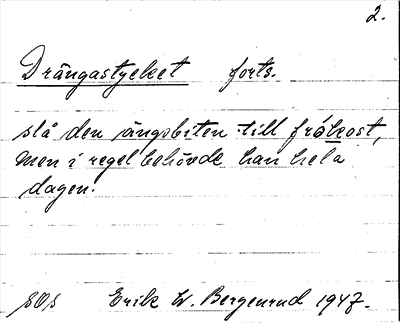 2.
Drängastycket forts.
slå den ängsbiten till frökost,
men i regel behövde han hela
dagen.
Erik W. Bergenrud 1947.